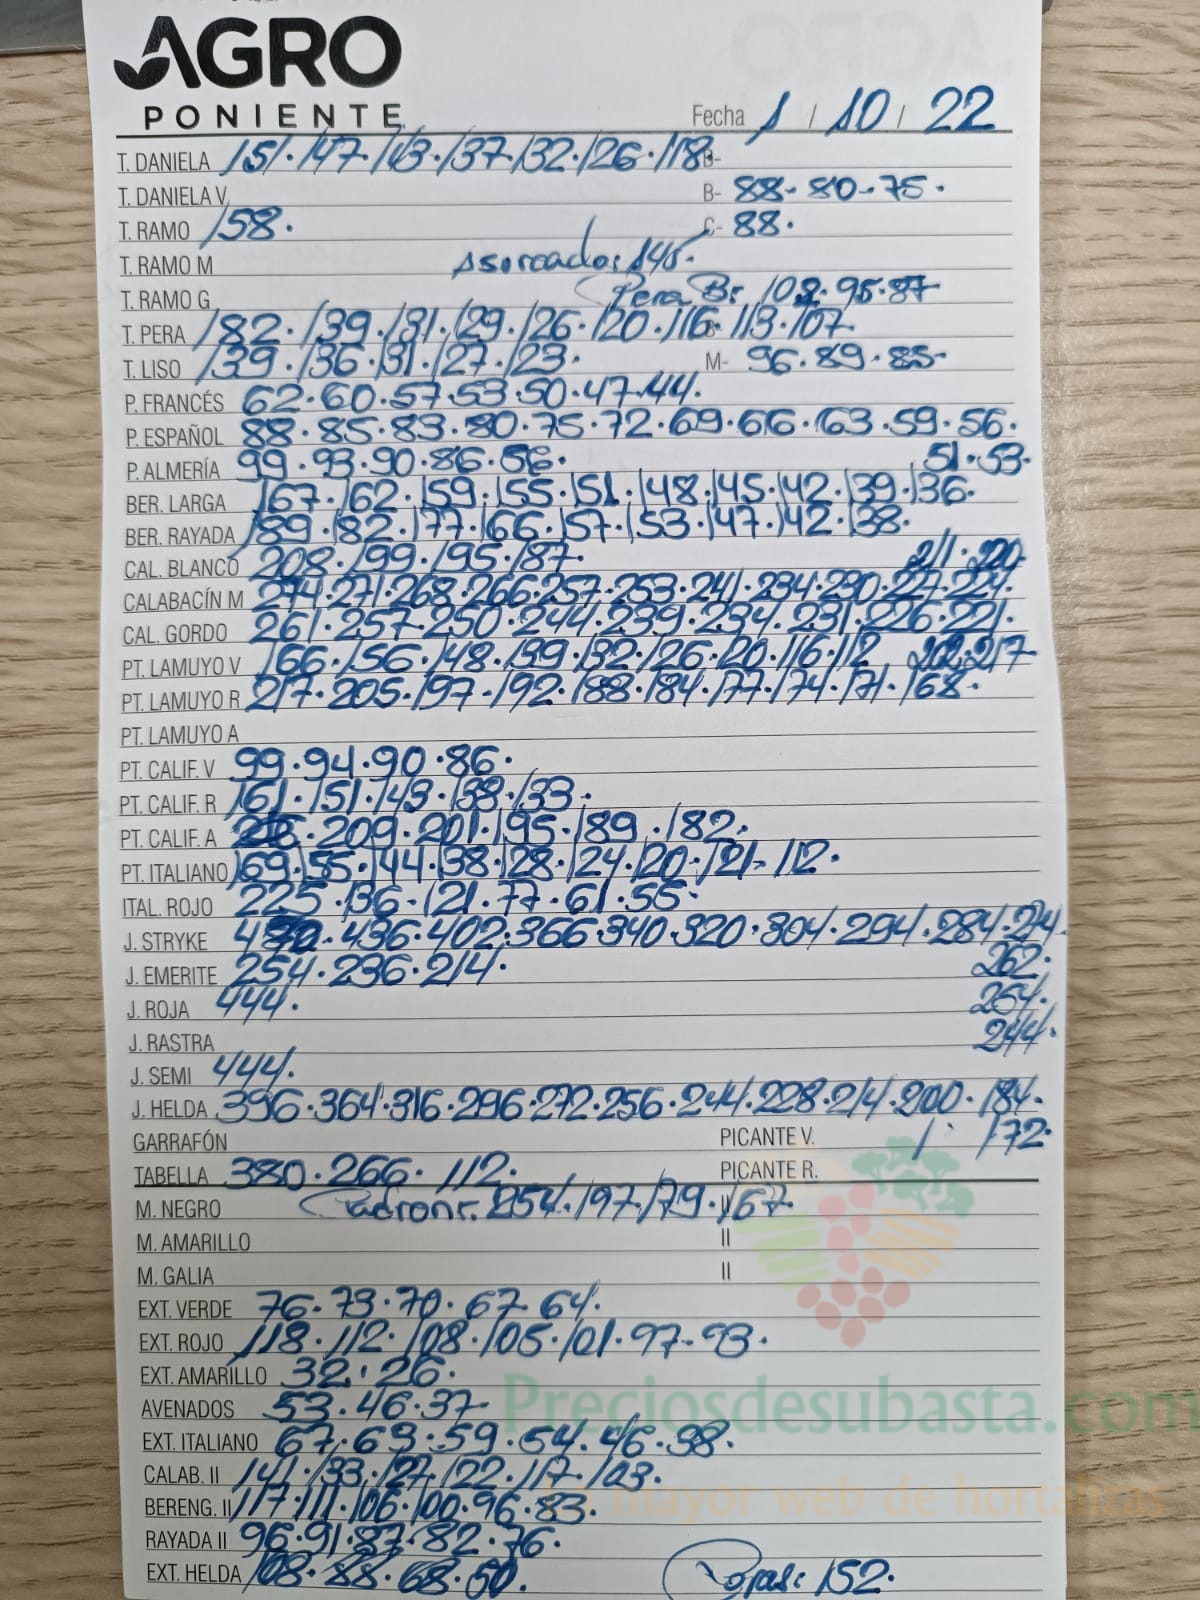 AGRO
PONIENTE
Fecha 1 / 10 / 22
T. DANIELA 151. 147. 143. 137. 132. 126. 118. B-
T. DANIELA V. B- 88- 80- 75.
T. RAMO 158. C- 88.
T. RAMO M Asurcados 145.
T. RAMO G Pera B: 102. 95. 87-
T. PERA 182. 139. 131. 129. 126. 120. 116. 113. 107. B-
T. LISO 139. 136. 131. 127. 123. M- 96. 89. 85-
P. FRANCÉS 62. 60. 57. 53. 50. 47. 44.
P. ESPAÑOL 88. 85. 83. 80. 75. 72. 69. 66. 63. 59. 56.
P. ALMERÍA 99. 93. 90. 86. 56. 51. 53.
BER. LARGA 167. 162. 159. 155. 151. 148. 145. 142. 139. 136.
BER. RAYADA 189. 182. 177. 166. 157. 153. 147. 142. 138.
CAL. BLANCO 208. 199. 195. 187. 211. 220
CALABACÍN M 274. 271. 268. 266. 257. 253. 241. 234. 230. 227. 224.
CAL. GORDO 261. 257. 250. 244. 239. 234. 231. 226. 221.
PT. LAMUYO V 166. 156. 148. 139. 132. 126. 120. 116. 112. 217
PT. LAMUYO R 217. 205. 197. 192. 188. 184. 177. 174. 171. 168.
PT. LAMUYO A
PT. CALIF. V 99. 94. 90. 86.
PT. CALIF. R 161. 151. 143. 138. 133.
PT. CALIF. A 209. 201. 195. 189. 182.
PT. ITALIANO 169. 155. 144. 138. 128. 124. 120. 121- 112.
ITAL. ROJO 225. 136. 121. 77. 61. 55.
J. STRYKE 436. 402. 366. 340. 320. 304. 294. 284. 274.
J. EMERITE 254. 236. 214. 262.
J. ROJA 444. 254.
J. RASTRA 244.
J. SEMI 444.
J. HELDA 396. 364. 316. 296. 272. 256. 244. 228. 214. 200. 184.
GARRAFÓN PICANTE V. 172.
TABELLA 380. 266. 112. PICANTE R.
M. NEGRO Padron: 254. 197. 179. 167- II
M. AMARILLO II
M. GALIA II
EXT. VERDE 76. 73. 70. 67. 64.
EXT. ROJO 118. 112. 108. 105. 101. 97- 93.
EXT. AMARILLO 32. 26.
AVENADOS 53. 46. 37-
Preciosdesubasta.com
EXT. ITALIANO 67. 63. 59. 54. 46. 38.
CALAB. II 141. 133. 127. 122. 117. 103.
BERENG. II 117. 111. 106. 100. 96. 83.
La mayor web de hortalizas
RAYADA II 96. 91. 87. 82. 76.
EXT. HELDA 108. 88. 68. 50. Rojas: 152.